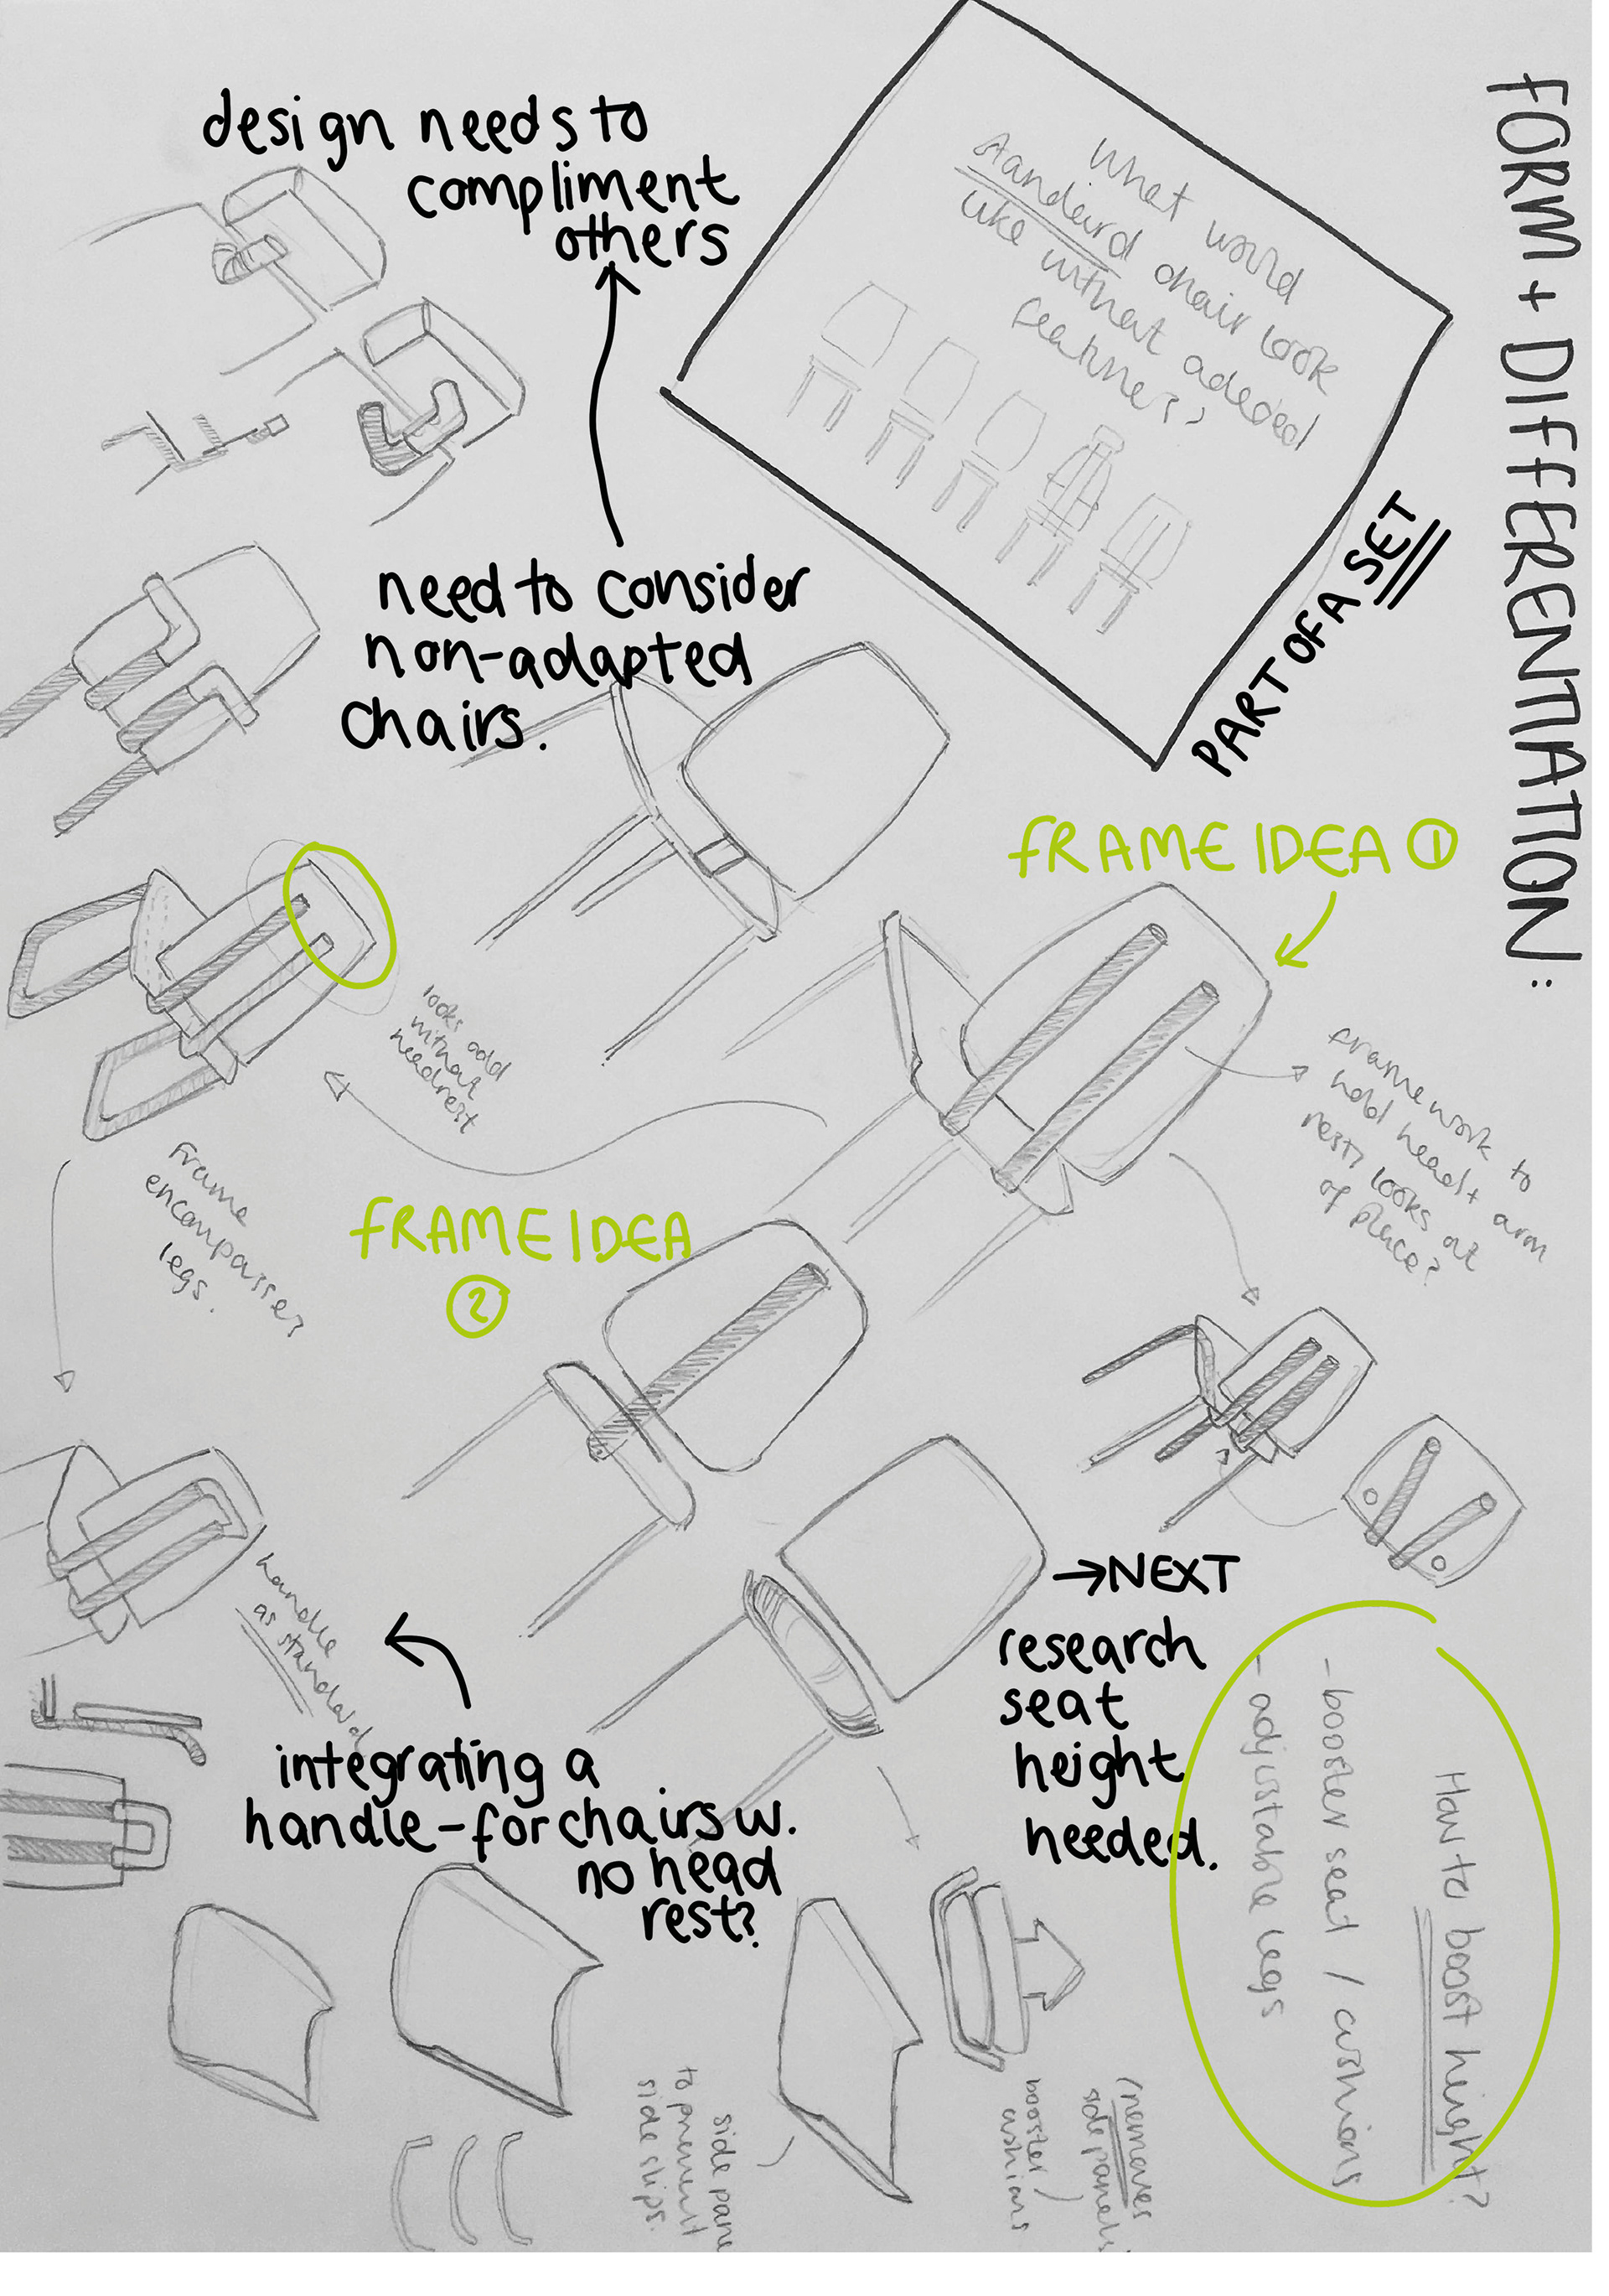 FORM + DIFFERENTIATION:
design needs to
compliment
others
What would
standard chair look
like without added
features?
PART OF A SET
need to consider
non-adapted
chairs.
FRAME IDEA ①
looks odd
without
headrest
framework to
hold head + arm
rest? looks out
of place?
frame
encompasses
legs.
FRAME IDEA
②
handle
as standard
→NEXT
research
seat
height
needed.
integrating a
handle-for chairs w.
no head
rest?
How to boost height?
- booster seat / cushions
- adjustable legs
side pane
to prevent
side slips.
(removes
side panels
booster /
cushions